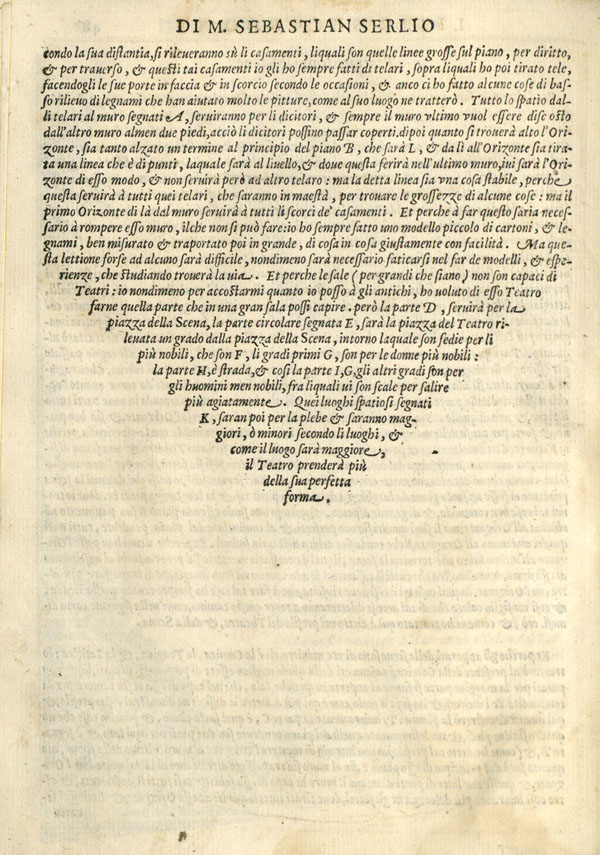 DI M. SEBASTIAN SERLIO
condo la sua distantia, si rileueranno sù li casamenti, liquali son quelle linee grosse sul piano, per diritto,
& per trauerso, & questi tai casamenti io gli ho sempre fatti di telari, sopra liquali ho poi tirato tele,
facendogli le sue porte in faccia & in scorcio secondo le occasioni, & anco ci ho fatto alcune cose di bas-
so rilieuo di legnami che han aiutato molto le pitture, come al suo luogo ne tratterò. Tutto lo spatio dal-
li telari al muro segnati A, seruiranno per li dicitori, & sempre il muro vltimo vuol essere discosto
dall'altro muro almen due piedi, acciò li dicitori possino passar coperti. dipoi quanto si trouerà alto l'Ori-
zonte, sia tanto alzato un termine al principio del piano B, che sarà L, & da lì all'Orizonte sia tira-
ta una linea che è di punti, laquale sarà al liuello, & doue questa ferirà nell'ultimo muro, iui sarà l'Ori-
zonte di esso modo, & non seruirà però ad altro telaro: ma la detta linea sia vna cosa stabile, perche
questa seruirà à tutti quei telari, che saranno in maestà, per trouare le grossezze di alcune cose: ma il
primo Orizonte di là dal muro seruirà à tutti li scorci de' casamenti. Et perche à far questo saria neces-
sario à rompere esso muro, ilche non si può fare: io ho sempre fatto vno modello piccolo di cartoni, & le-
gnami, ben misurato & traportato poi in grande, di cosa in cosa giustamente con facilità. Ma que-
sta lettione forse ad alcuno sarà difficile, nondimeno sarà necessario faticarsi nel far de modelli, & espe-
rienze, che studiando trouerà la uia. Et perche le sale (per grandi che siano) non son capaci di
Teatri: io nondimeno per accostarmi quanto io posso à gli antichi, ho uoluto di esso Teatro
farne quella parte che in una gran sala possi capire. però la parte D, seruirà per la
piazza della Scena, la parte circolare segnata E, sarà la piazza del Teatro ri-
leuata un grado dalla piazza della Scena, intorno laquale son sedie per li
più nobili, che son F, li gradi primi G, son per le donne più nobili:
la parte H, è strada, & cosi la parte I, G, gli altri gradi son per
gli huomini men nobili, fra liquali ui son scale per salire
più agiatamente. Quei luoghi spatiosi segnati
K, saran poi per la plebe & saranno mag-
giori, ò minori secondo li luoghi, &
come il luogo sarà maggiore,
il Teatro prenderà più
della sua perfetta
forma.